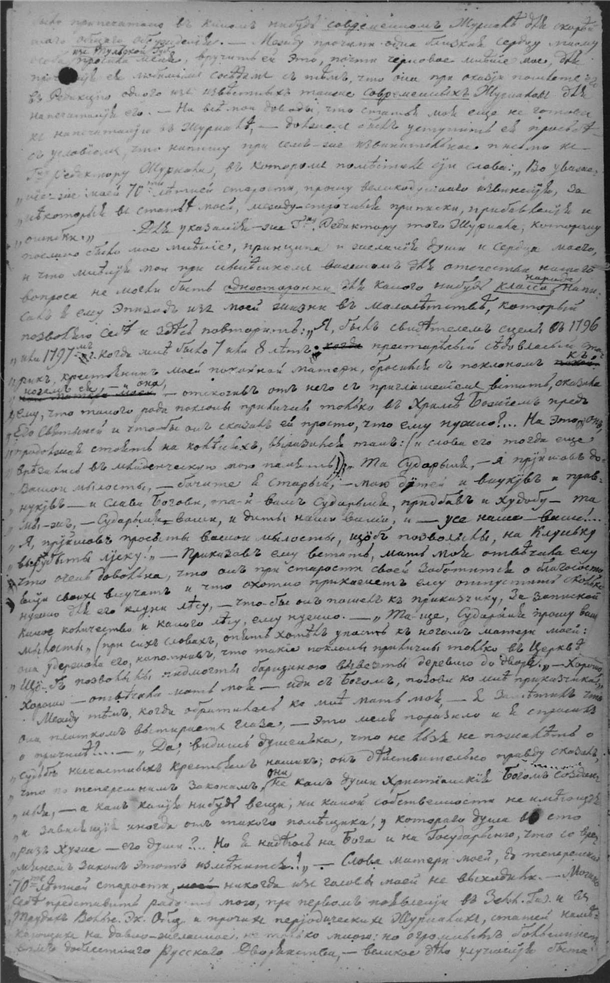 было напечатано въ какомъ нибудь современномъ Журналѣ для скорѣй-
шаго общаго обсужденія. — Между прочими одна близкая сердцу моему
особа просила меня, вручить ей это, почти черновое мнѣніе мое, для
съ тѣмъ, что она при оказіи
въ Редакцію одного изъ извѣстныхъ такихъ современныхъ Журналовъ для
напечатанія его. — На всѣ мои доводы, что статья моя еще не готова
къ напечатанію въ Журналѣ, — долженъ былъ уступить ея просьбѣ
съ условіемъ, что напишу при семъ извинительное письмо къ
Гну Редактору Журнала, въ которомъ помѣстилъ сіи слова: „Во уваже-
„ніе моей 70 лѣтней старости, прошу великодушнаго извиненія, за
„нѣкоторыя въ статьѣ моей, между-строчныя приписки, прибавленія и
„ошибки.„ Для указанія Гну Редактору того Журнала, которому
послано было мое мнѣніе, принципа и желанія души и сердца моего,
и что мнѣнія мои при нынѣшнемъ важномъ для отечества нашего
вопросѣ не могли быть односторонни для какого нибудь класса народа, напи-
салъ я ему эпизодъ изъ моей жизни въ малолѣтствѣ, который
позволяю себѣ и здѣсь повторить: „Я былъ свидѣтелемъ сцены въ 1796
„или 1797мъ когда мнѣ было 7 или 8 лѣтъ: престарѣлый сѣдовласый ста-
„рикъ, крестьянинъ моей покойной матери, бросился съ поклономъ къ
„ногамъ ея, — она, отскочивъ отъ него съ приглашеніемъ встать, сказала
„ему, что такого рода поклоны приличны только въ Храмѣ Божіемъ предъ
„Его святыней и чтобы онъ сказалъ ей просто, что ему нужно?... На это онъ
„продолжая стоять на колѣняхъ, выразился такъ: (и слова его тогда еще
„врѣзались въ младенческую мою память): „Та Сударыня, — я прійшовъ до
„Вашои мылости, — бачите я старый, — маю дѣтей и внукивъ и прав-
„нукивъ — и слава Богови, та-й вамъ Сударыня, придбавъ и худобу — та
„мы-жъ, — Сударыня ваши, и диты наши ваши, и — усе наше — ваше!...
„Я прійшовъ просыты вашои мылости, щобъ позволылы, на
„вырубыты лиску.„ — Приказавъ ему встать, мать моя отвѣчала ему
„что очень довольна, что онъ при старости своей заботится о благосостоя-
„ніи своихъ внучатъ и что охотно прикажетъ ему отпустить сколько
„нужно для его клуни лѣсу, — что-бы онъ пошелъ къ прикащику, за запиской
„какое количество и какого лѣсу, ему нужно. — „Та-ще, Сударыня прошу вашои
„мылости, (при сихъ словахъ, опять хотѣлъ упасть къ ногамъ матери моей:
„она удержала его, напомнивъ, что такіе поклоны приличны только въ Церквѣ,
— Хорошо,
„Хорошо — отвѣчала мать моя — иди съ Богомъ, позови ко мнѣ прикащика.
„Между тѣмъ, когда обратилась ко мнѣ мать моя, — я замѣтилъ что
„она платкомъ вытираетъ глаза, — это меня поразило и я спросилъ
„о причинѣ?.... — „Да, видишь душенька, что не льзя не пожалѣть о
„судьбѣ несчастныхъ крестьянъ нашихъ; онъ дѣйствительно правду сказалъ,
„что по теперешнимъ законамъ, они не какъ души Христіанскія Богомъ создан-
„ныя, — а какъ какія нибудь вещи, ни какой собственности не имѣющія
„и зависящія иногда отъ такого помѣщика, у котораго душа въ сто
„разъ хуже — его души?.. Но я надѣюсь на Бога и на Государыню, что со вре-
„менемъ законъ этотъ измѣнится!„ — Слова матери моей, до теперешней
„70 лѣтней старости, никогда изъ головы моей не выходили. — Можете
себѣ представить радость мою, при первомъ появленіи въ Земл. Газ. и въ
Трудахъ Вольн. Эк. Общ. и прочихъ періодическихъ Журналахъ, статей намѣ-
кающихъ на давно-желанное не только много: но огромнымъ большинст-
вомъ доблестнаго Русскаго Дворянства, — великое дѣло улучшенія быта